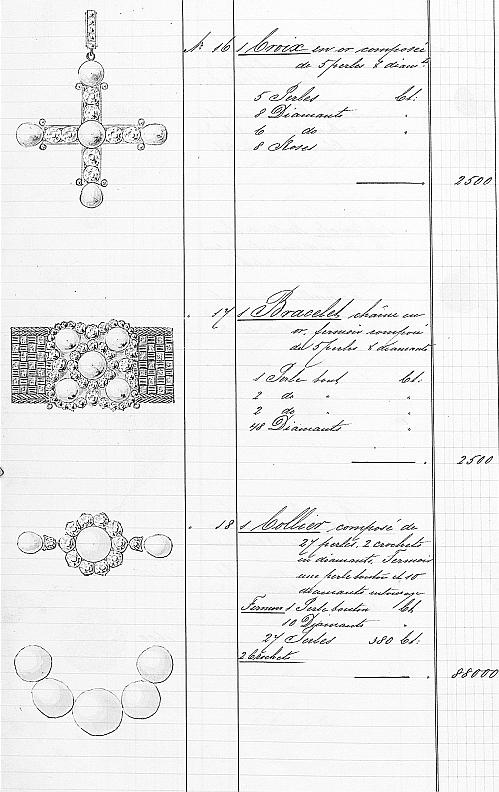 № 16 1 Croix en or composée
de 5 perles & diamts
5 Perles Ct.
8 Diamants "
6 do "
8 Roses
2500
" 17 1 Bracelet chaîne en
or, fermoir composé
de 5 perles & diamants
1 Perle bout Ct.
2 do " "
2 do " "
48 Diamants "
2500
" 18 1 Collier composé de
27 perles, 2 crochets
en diamants, Fermoir
une perle bouton et 10
diamants entourage
Fermoir 1 Perle bouton Ct
10 Diamants "
27 Perles 380 Ct.
2 Crochets
88000